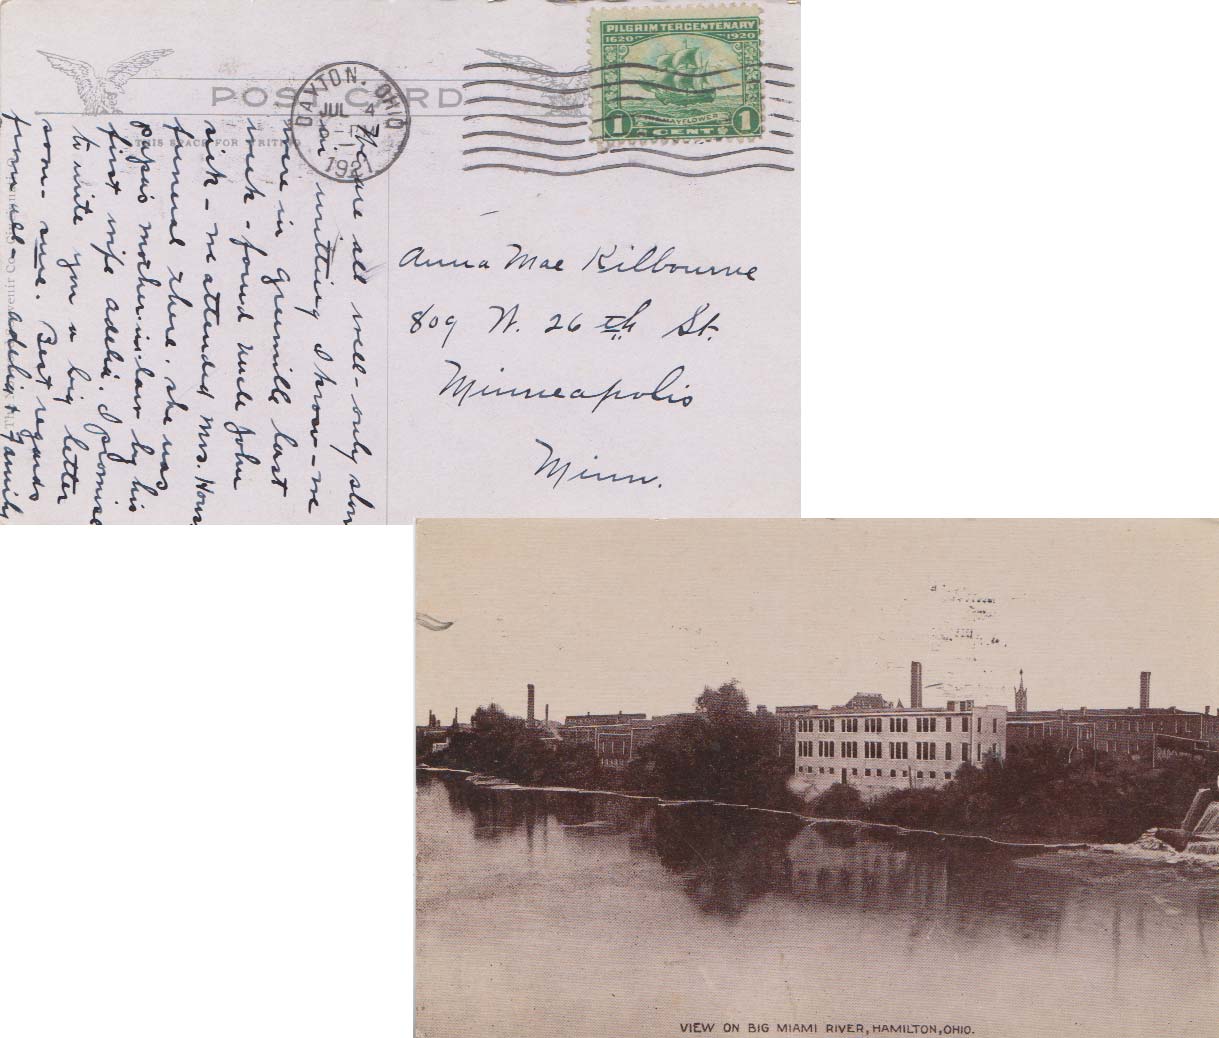 PILGRIM TERCENTENARY
1620 1920
THE MAYFLOWER
1 CENT 1
POST CARD
DAYTON, OHIO
JUL 4
1921
THIS SPACE FOR WRITING
We are all well - only slow
on writing I know - we
were in Greenville last
week - found Uncle John
sick - we attended Mrs. Hous
funeral there. she was
papa's mother-in-law by his
first wife adelia. I promise
to write you a big letter
soon - sure. Best regards
from all - adelia & Family
Anna Mae Kilbourne
809 W. 26th St.
Minneapolis
Minn.
VIEW ON BIG MIAMI RIVER, HAMILTON, OHIO.